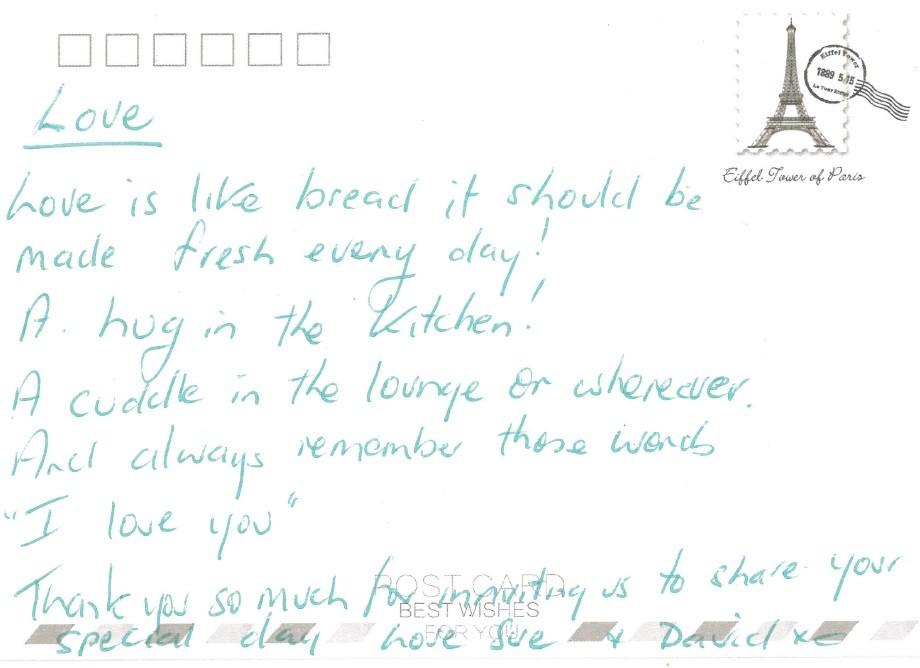 Love
Eiffel Tower
1889 5.15
La Tour Eiffel
Eiffel Tower of Paris
Love is like bread it should be
made fresh every day!
A. hug in the Kitchen!
A cuddle in the lounge or whereever.
And always remember those words
"I love you"
Thank you so much for inviting us to share your
special day Love Sue + David xx
POST CARD
BEST WISHES
FOR YOU